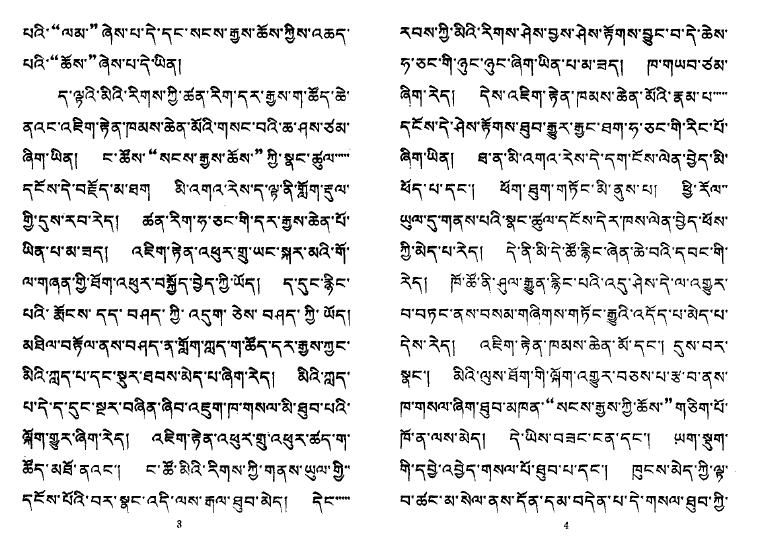 པའི་“ལམ་”ཞེས་པ་དེ་དང་སངས་རྒྱས་ཆོས་ཀྱིས་འཆད་
པའི་“ཆོས་”ཞེས་པ་དེ་ཡིན།
ད་ལྟའི་མིའི་རིགས་ཀྱི་ཚན་རིག་དར་རྒྱས་ག་ཚོད་ཆེ་
ནའང་འཇིག་རྟེན་ཁམས་ཆེན་མོའི་གསང་བའི་ཆ་ཤས་ཙམ་
ཞིག་ཡིན། ང་ཚོས་“སངས་རྒྱས་ཆོས་”ཀྱི་སྣང་ཚུལ་
དངོས་དེ་བརྗོད་མ་ཐག མི་འགའ་རེས་ད་ལྟ་ནི་གློག་རྡུལ་
གྱི་དུས་རབ་རེད། ཚན་རིག་ཧ་ཅང་གི་དར་རྒྱས་ཆེན་པོ་
ཡིན་པ་མ་ཟད། འཇིག་རྟེན་འཕུར་གྲུ་ཡང་སྐར་མའི་གོ་
ལ་གཞན་གྱི་ཐོག་འཕུར་བསྐྱོད་བྱེད་ཀྱི་ཡོད། ད་དུང་རྙིང་
པའི་ རྨོངས་ དད་ བཤད་ ཀྱི་ འདུག་ ཅེས་ བཤད་ ཀྱི་ ཡོད།
མཐིལ་བརྟོལ་ནས་བཤད་ན་གློག་ཀླད་ག་ཚོད་དར་རྒྱས་ཀྱང་
མིའི་ཀླད་པ་དང་སྡུར་ཐབས་མེད་པ་ཞིག་རེད། མིའི་ཀླད་
པ་དེ་ད་དུང་སྔར་བཞིན་ཞིབ་འཇུག་ཁ་གསལ་མི་ཐུབ་པའི་
ལྐོག་གྱུར་ཞིག་རེད། འཇིག་རྟེན་འཕུར་གྲུ་འཕུར་ཚད་ག་
ཚོད་མཐོ་ནའང་། ང་ཚོ་མིའི་རིགས་ཀྱི་གནས་ཡུལ་གྱི་
དངོས་པོའི་བར་སྣང་འདི་ལས་རྒལ་ཐུབ་མེད། དེང་
3
རབས་ཀྱི་མིའི་རིགས་ཤེས་བྱས་ཤེས་རྟོགས་བྱུང་བ་དེ་ཆེས་
ཧ་ཅང་གི་ཉུང་ཉུང་ཞིག་ཡིན་པ་མ་ཟད། ཁ་གཡབ་ཙམ་
ཞིག་རེད། དེས་འཇིག་རྟེན་ཁམས་ཆེན་མོའི་རྣམ་པ་
དངོས་དེ་ཤེས་རྟོགས་ཐུབ་རྒྱུར་རྒྱང་ཐག་ཧ་ཅང་གི་རིང་པོ་
ཞིག་ཡིན། ཐ་ན་མི་འགའ་རེས་དེ་དག་ངོས་ལེན་བྱེད་མི་
ཕོད་པ་དང་། ཕོག་ཐུག་གཏོང་མི་ནུས་པ། ཕྱི་རོལ་
ཡུལ་དུ་གནས་པའི་སྣང་ཚུལ་དངོས་དེར་ཁས་ལེན་བྱེད་ཕོས་
ཀྱི་མེད་པ་རེད། དེ་ནི་མི་དེ་ཚོ་རྙིང་ཞེན་ཆེ་བའི་དབང་གི་
རེད། ཁོ་ཚོ་ནི་ཤུལ་རྒྱུན་རྙིང་པའི་འདུ་ཤེས་དེ་ལ་འགྱུར་
བ་བཏང་ནས་བསམ་གཞིགས་གཏོང་རྒྱུའི་འདོད་པ་མེད་པ་
དེས་རེད། འཇིག་རྟེན་ཁམས་ཆེན་མོ་དང་། དུས་བར་
སྣང་། མིའི་ལུས་ཐོག་གི་ལྐོག་འགྱུར་བཅས་པ་རྩ་བ་ནས་
ཁ་གསལ་ཞིག་ཐུབ་མཁན་“སངས་རྒྱས་ཀྱི་ཆོས་”གཅིག་པོ་
ཁོ་ན་ལས་མེད། དེ་ཡིས་བཟང་ངན་དང་། ཡག་སྡུག་
གི་དབྱེ་འབྱེད་གསལ་པོ་ཐུབ་པ་དང་། ཁུངས་མེད་ཀྱི་ལྟ་
བ་ཚང་མ་སེལ་ནས་དོན་དམ་བདེན་པ་དེ་གསལ་ཐུབ་ཀྱི་
4